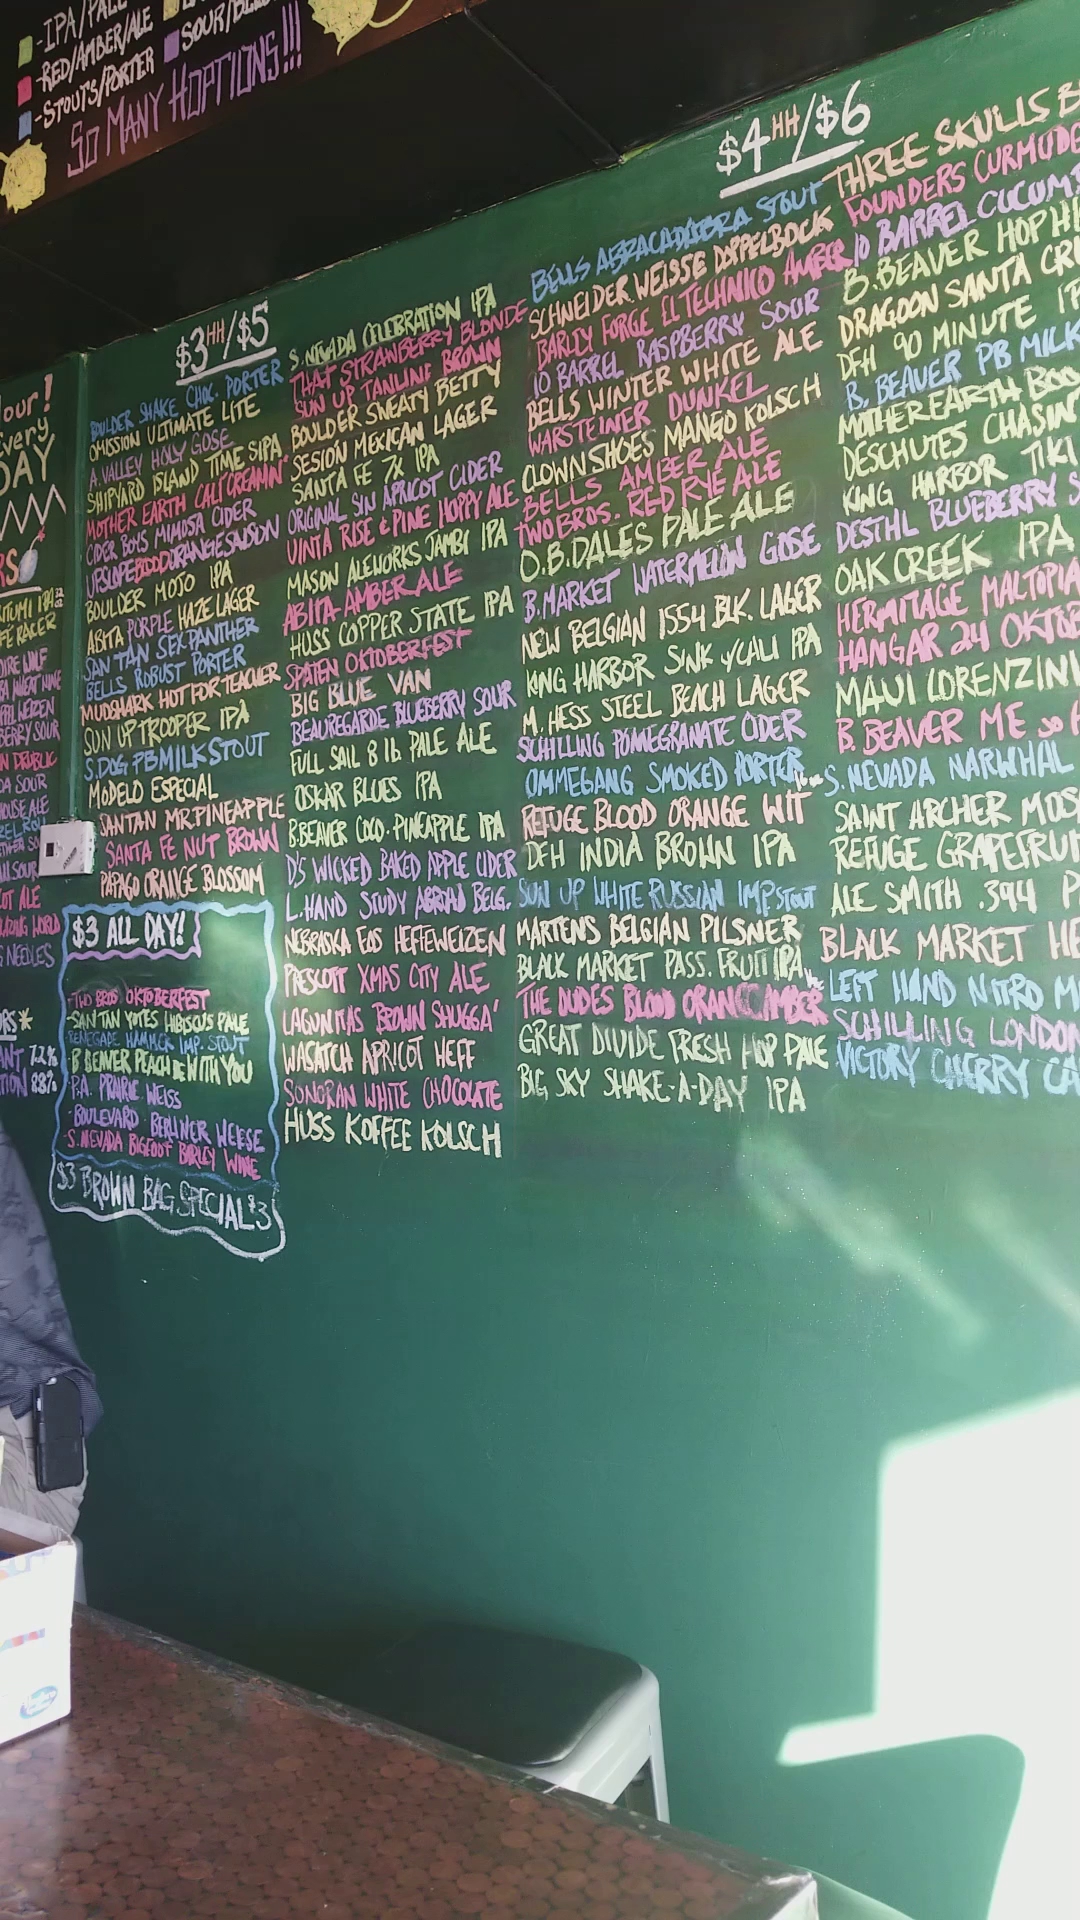 -IPA/PALE
-RED/AMBER/ALE
-STOUTS/PORTER
SOUR/
SO MANY HOPTIONS!!!
our!
Every
DAY
$3HH/$5
BOULDER SHAKE CHOC. PORTER
OMISSION ULTIMATE LITE
A. VALLEY HOLY GOSE
SHIPYARD ISLAND TIME SIPA
MOTHER EARTH CALI CREAMIN'
CIDER BOYS MIMOSA CIDER
UPSLOPE BLOOD ORANGE SAISON
BOULDER MOJO IPA
ABITA PURPLE HAZE LAGER
SAN TAN SEX PANTHER
BELLS ROBUST PORTER
MUDSHARK HOT FOR TEACHER
SUN UP TROOPER IPA
S.DOG PB MILK STOUT
MODELO ESPECIAL
SANTAN MR. PINEAPPLE
SANTA FE NUT BROWN
PAPAGO ORANGE BLOSSOM
$3 ALL DAY!
-TWO BROS OKTOBERFEST
-SAN TAN YOTES HIBISCUS PALE
-RENEGADE HAMMER IMP. STOUT
-B BEAVER PEACH BE WITH YOU
-P.A. PRAIRIE WEISS
-BOULEVARD BERLINER WEISSE
-S. NEVADA BIGFOOT BARLEY WINE
$3 BROWN BAG SPECIAL $3
S. NEVADA CELEBRATION IPA
THAT STRAWBERRY BLONDE
SUN UP TANLINE BROWN
BOULDER SWEATY BETTY
SESION MEXICAN LAGER
SANTA FE 7K IPA
ORIGINAL SIN APRICOT CIDER
UINTA RISE & PINE HOPPY ALE
MASON ALEWORKS JAMBI IPA
ABITA-AMBER ALE
HUSS COPPER STATE IPA
SPATEN OKTOBERFEST
BIG BLUE VAN
BEAUREGARDE BLUEBERRY SOUR
FULL SAIL 8 lb. PALE ALE
OSKAR BLUES IPA
B.BEAVER COCO. PINEAPPLE IPA
D'S WICKED BAKED APPLE CIDER
L.HAND STUDY ABROAD BELG.
NEBRASKA EOS HEFEWEIZEN
PRESCOTT XMAS CITY ALE
LAGUNITAS BROWN SHUGGA'
WASATCH APRICOT HEFF
SONORAN WHITE CHOCOLATE
HUSS KOFFEE KOLSCH
$4HH/$6
BELLS ABRACADABRA STOUT
SCHNEIDER WEISSE DOPPELBOCK
BARLEY FORGE EL TECHNICO AMBER
10 BARREL RASPBERRY SOUR
BELLS WINTER WHITE ALE
WARSTEINER DUNKEL
CLOWN SHOES MANGO KOLSCH
BELLS AMBER ALE
TWO BROS. RED RYE ALE
O.B. DALES PALE ALE
B.MARKET WATERMELON GOSE
NEW BELGIAN 1554 BLK. LAGER
KING HARBOR SINK yCALI IPA
M. HESS STEEL BEACH LAGER
SCHILLING POMEGRANATE CIDER
OMMEGANG SMOKED PORTER
REFUGE BLOOD ORANGE WIT
DFH INDIA BROWN IPA
SUN UP WHITE RUSSIAN IMP STOUT
MARTENS BELGIAN PILSNER
BLACK MARKET PASS. FRUIT IPA
THE DUDES BLOOD ORANGE AMBER
GREAT DIVIDE FRESH HOP PALE
BIG SKY SHAKE-A-DAY IPA
THREE SKULLS B
FOUNDERS CURMUDG
10 BARREL CUCUM
B.BEAVER HOP HI
DRAGOON SANTA CRU
DFH 90 MINUTE IP
B. BEAVER PB MILK
MOTHER EARTH BOO
DESCHUTES CHASIN'
KING HARBOR TIKI
DESTHL BLUEBERRY S
OAK CREEK IPA
HERMITAGE MALTOPIA
HANGAR 24 OKTOB
MAUI LORENZINI
B. BEAVER ME so H
S. NEVADA NARWHAL
SAINT ARCHER MOS
REFUGE GRAPEFRUIT
ALE SMITH .394 P
BLACK MARKET HE
LEFT HAND NITRO M
SCHILLING LONDON
VICTORY CHERRY CA